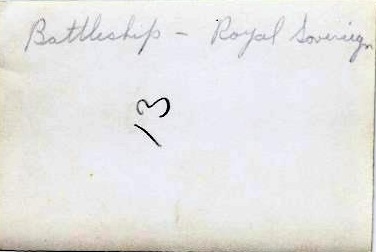 Battleship - Royal Sovereign
13